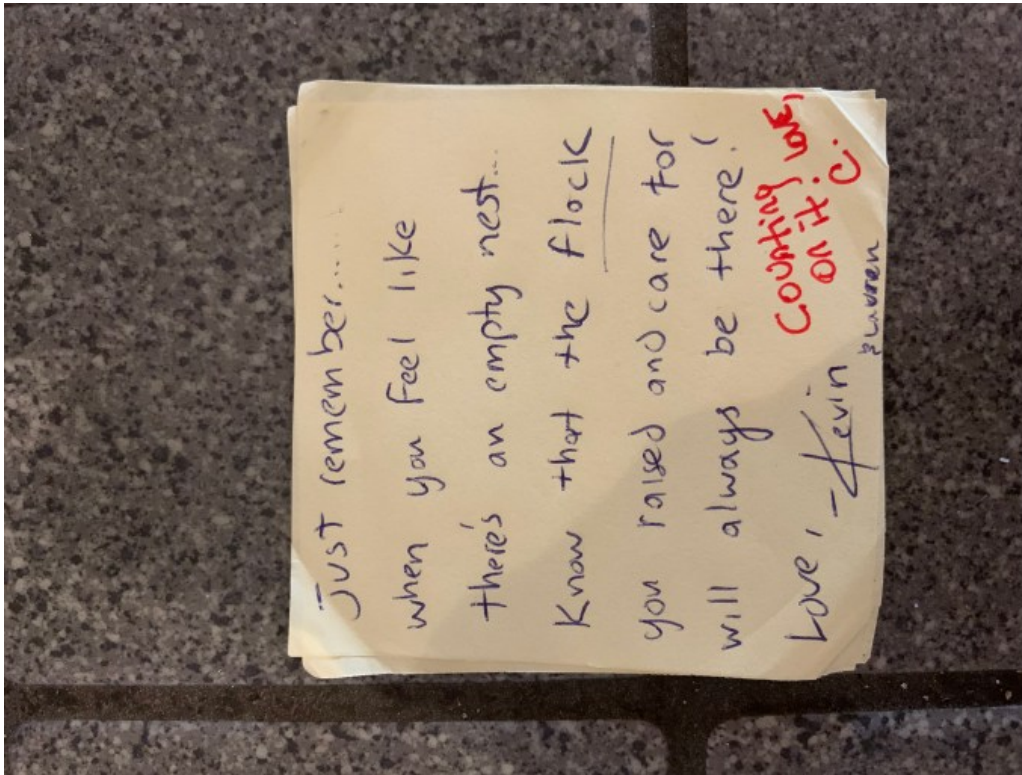 Just remember.....
when you feel like
there's an empty nest...
Know that the flock
you raised and care for
will always be there!
Love, -Kevin
& Lauren
Counting
on it. Love,
C.